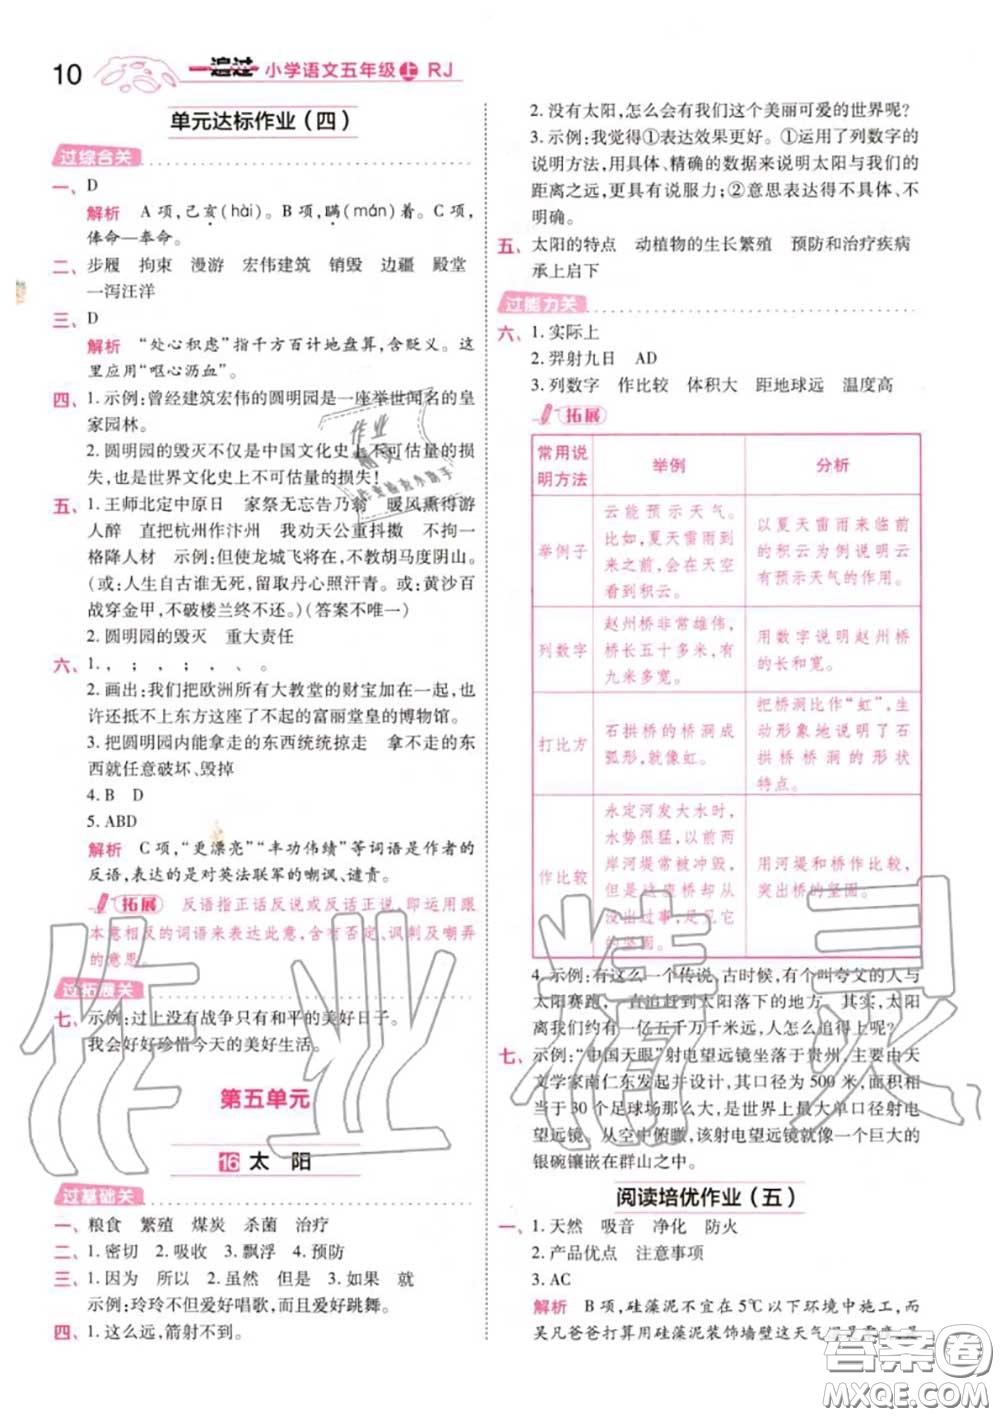 10 一遍过 小学语文五年级 上 RJ
单元达标作业(四)
过综合关
一、D
解析 A 项,己亥(hài)。B 项,瞒(mán)着。C 项,
俸命—奉命。
二、步履 拘束 漫游 宏伟建筑 销毁 边疆 殿堂
一泻汪洋
三、D
解析 “处心积虑”指千方百计地盘算,含贬义。这
里应用“呕心沥血”。
四、1. 示例:曾经建筑宏伟的圆明园是一座举世闻名的皇
家园林。
2. 圆明园的毁灭不仅是中国文化史上不可估量的损
失,也是世界文化史上不可估量的损失!
五、1. 王师北定中原日 家祭无忘告乃翁 暖风熏得游
人醉 直把杭州作汴州 我劝天公重抖擞 不拘一
格降人材 示例:但使龙城飞将在,不教胡马度阴山。
(或:人生自古谁无死,留取丹心照汗青。或:黄沙百
战穿金甲,不破楼兰终不还。)(答案不唯一)
2. 圆明园的毁灭 重大责任
六、1. , ; , ; , 、 。
2. 画出:我们把欧洲所有大教堂的财宝加在一起,也
许还抵不上东方这座了不起的富丽堂皇的博物馆。
3. 把圆明园内能拿走的东西统统掠走 拿不走的东
西就任意破坏、毁掉
4. B D
5. ABD
解析 C 项,“更漂亮”“丰功伟绩”等词语是作者的
反语,表达的是对英法联军的嘲讽、谴责。
拓展 反语指正话反说或反话正说,即运用跟
本意相反的词语来表达此意,含有否定、讽刺及嘲弄
的意思。
过拓展关
七、示例:过上没有战争只有和平的美好日子。
我会好好珍惜今天的美好生活。
第五单元
16 太 阳
过基础关
一、粮食 繁殖 煤炭 杀菌 治疗
二、1. 密切 2. 吸收 3. 飘浮 4. 预防
三、1. 因为 所以 2. 虽然 但是 3. 如果 就
示例:玲玲不但爱好唱歌,而且爱好跳舞。
四、1. 这么远,箭射不到。
2. 没有太阳,怎么会有我们这个美丽可爱的世界呢?
3. 示例:我觉得①表达效果更好。①运用了列数字的
说明方法,用具体、精确的数据来说明太阳与我们的
距离之远,更具有说服力;②意思表达得不具体、不
明确。
五、太阳的特点 动植物的生长繁殖 预防和治疗疾病
承上启下
过能力关
六、1. 实际上
2. 羿射九日 AD
3. 列数字 作比较 体积大 距地球远 温度高
拓展
常用说明方法 举例 分析
举例子 云能预示天气。比如,夏天雷雨到来之前,会在天空看到积云。 以夏天雷雨来临前的积云为例说明云有预示天气的作用。
列数字 赵州桥非常雄伟,桥长五十多米,有九米多宽。 用数字说明赵州桥的长和宽。
打比方 石拱桥的桥洞成弧形,就像虹。 把桥洞比作“虹”,生动形象地说明了石拱桥桥洞的形状特点。
作比较 永定河发大水时,水势很猛,以前两岸河堤常被冲毁,但是这座桥却从没出过事,足见它的坚固。 用河堤和桥作比较,突出桥的坚固。
4. 示例:有这么一个传说,古时候,有个叫夸父的人与
太阳赛跑,一直追赶到太阳落下的地方。其实,太阳
离我们约有一亿五千万千米远,人怎么追得上呢?
七、示例:“中国天眼”射电望远镜坐落于贵州,主要由天
文学家南仁东发起并设计,其口径为 500 米,面积相
当于 30 个足球场那么大,是世界上最大单口径射电
望远镜。从空中俯瞰,该射电望远镜就像一个巨大的
银碗镶嵌在群山之中。
阅读培优作业(五)
一、1. 天然 吸音 净化 防火
2. 产品优点 注意事项
3. AC
解析 B 项,硅藻泥不宜在 5℃以下环境中施工,而
吴凡爸爸打算用硅藻泥装饰墙壁这天气温
作业精灵
答案圈
MXQE.COM